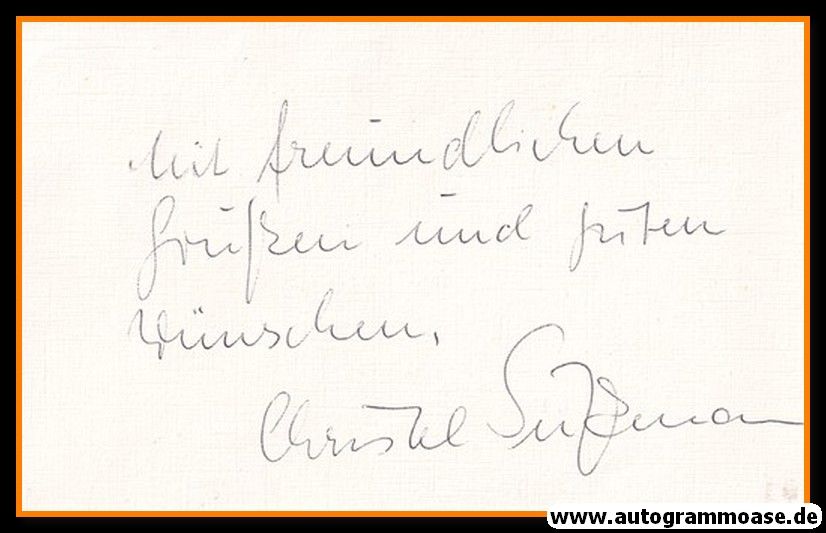 Mit freundlichen
Grüßen und guten
Wünschen.
Christel Süßmann
www.autogrammoase.de